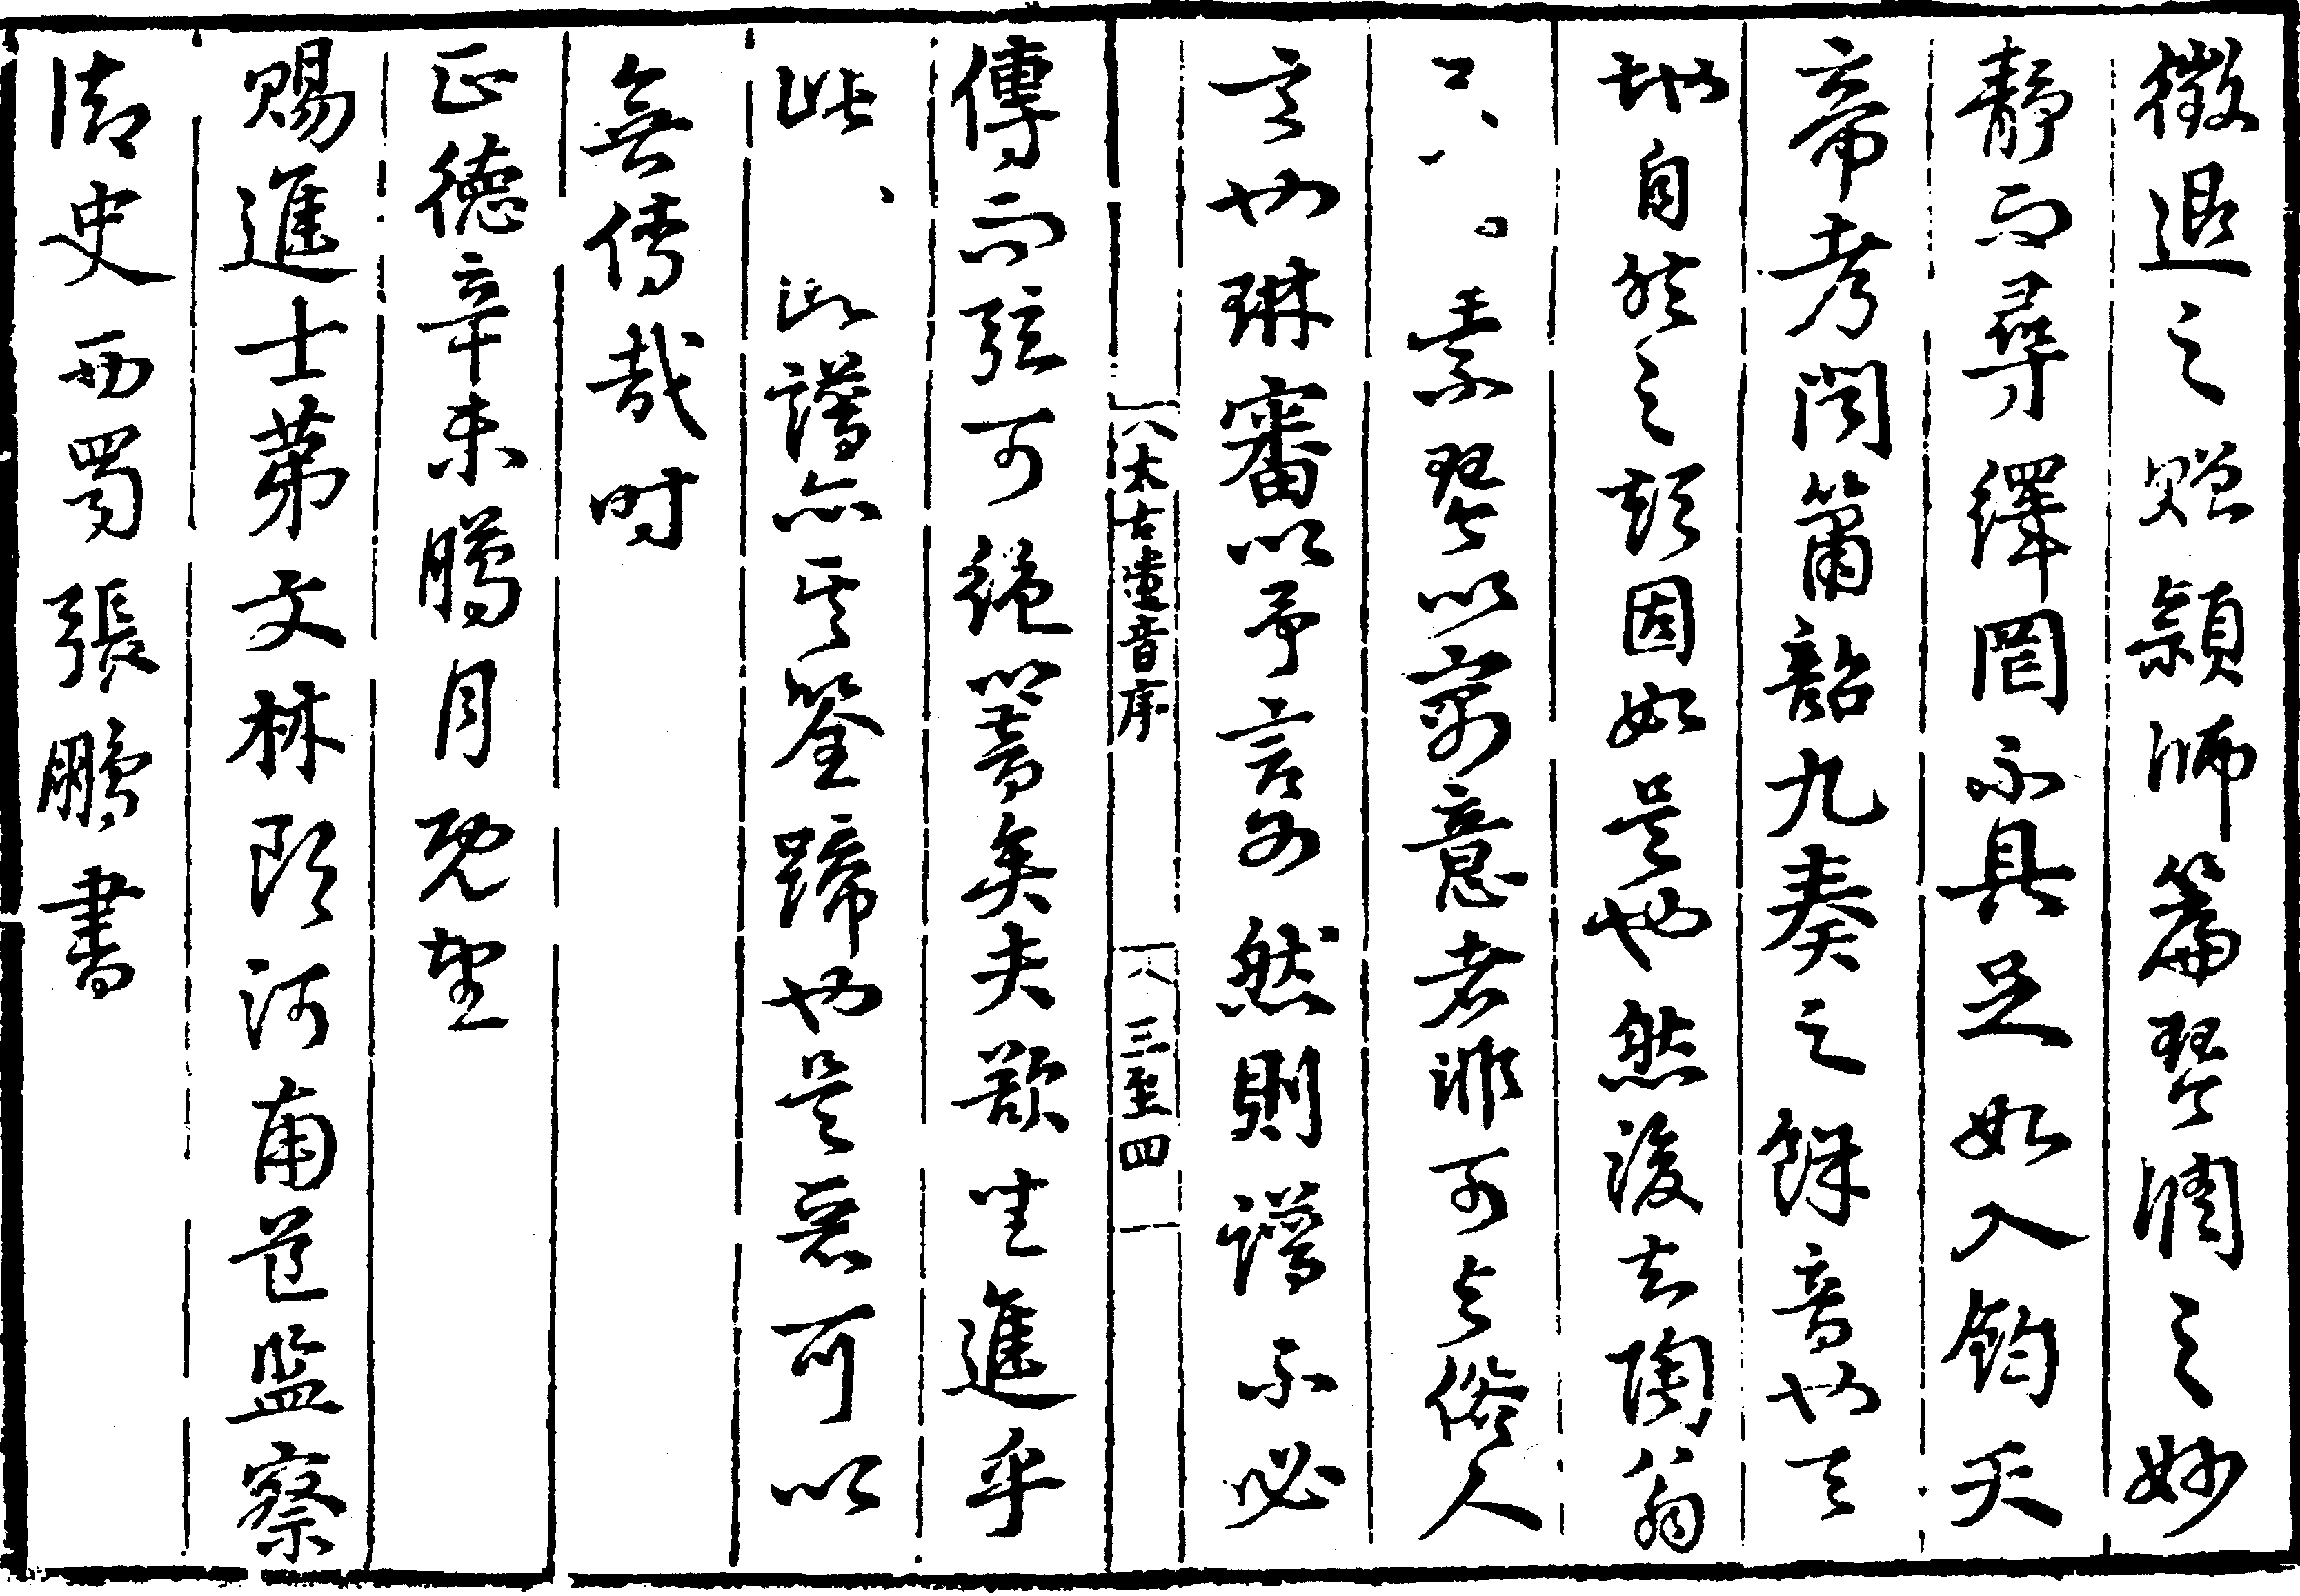 徵退之贈潁師篇琴澗之妙
靜而尋繹罔不具足如入鈞天
帝考聞簫韶九奏之餘音也天
地自然之類固如是也然後知陶翁
素琴以寓意者非可與俗人
言也琳審以予言為然則譜不必
傳而弦可絕以著矣夫欲坐進乎
此 此譜亦其筌蹄也是惡可以
無傳哉時
正德辛未臘月既望
賜進士第文林郎河南道監察
御史西蜀張鵬書
太古遺音序
三至四